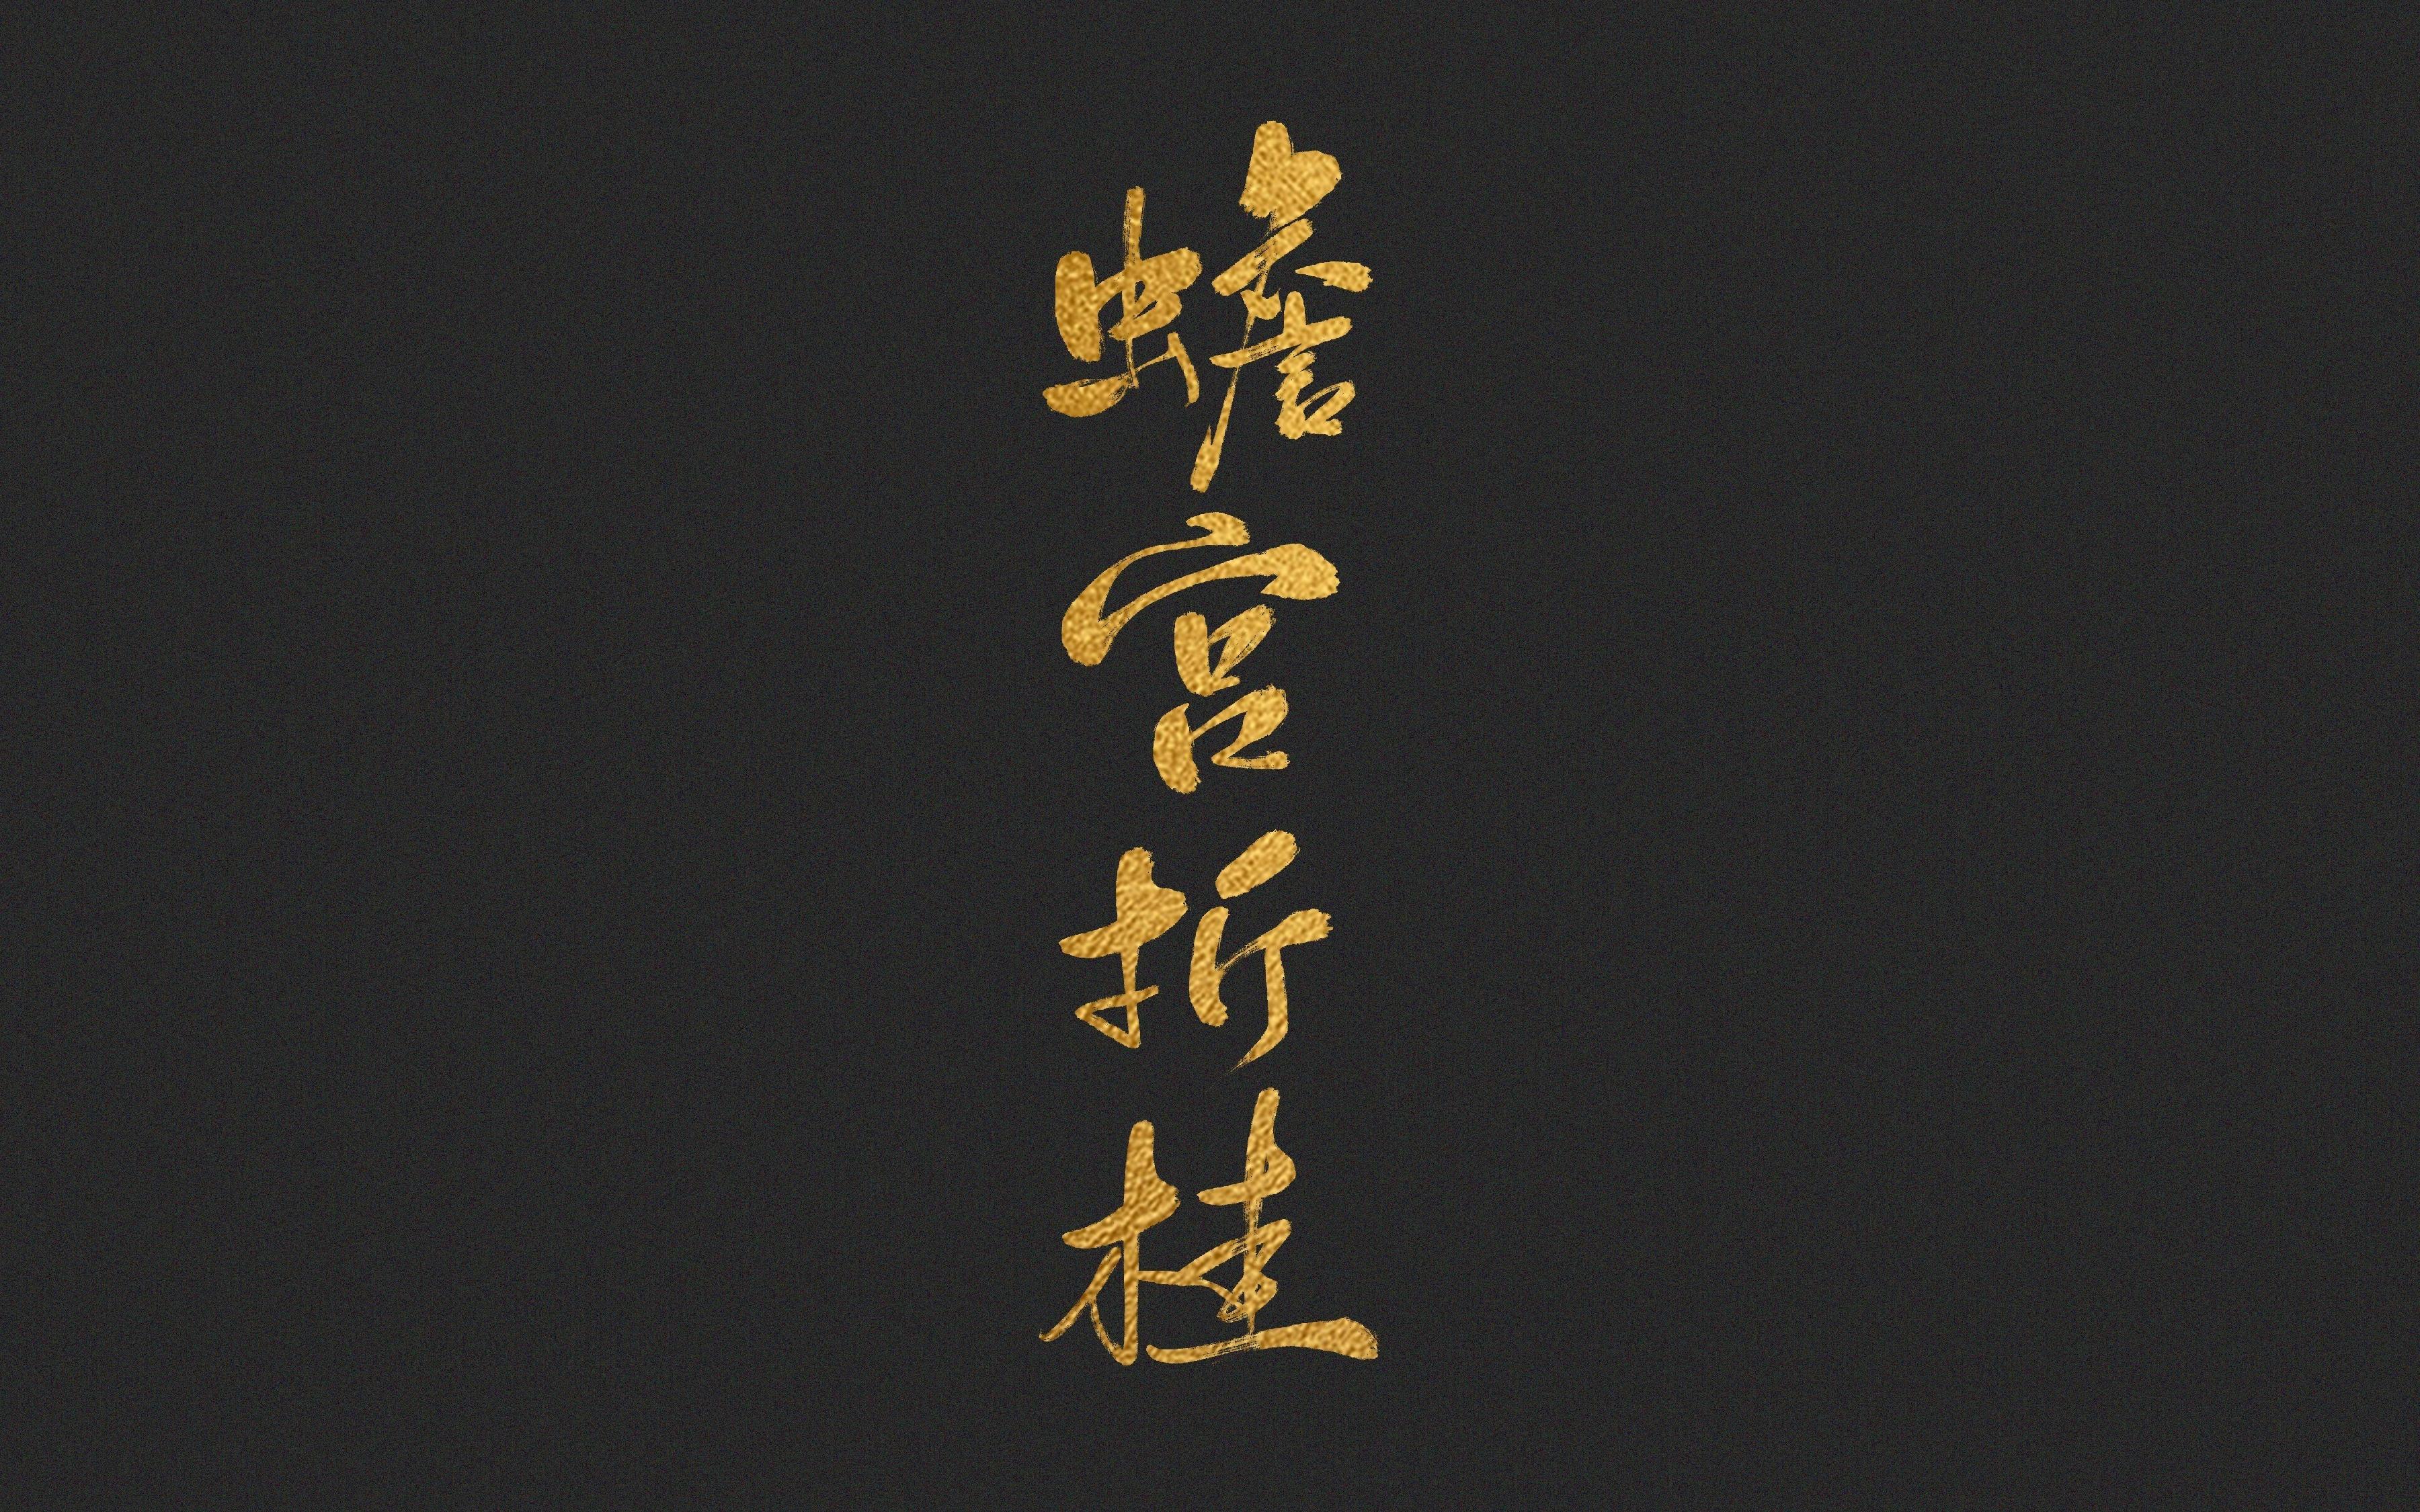 蟾宫折桂